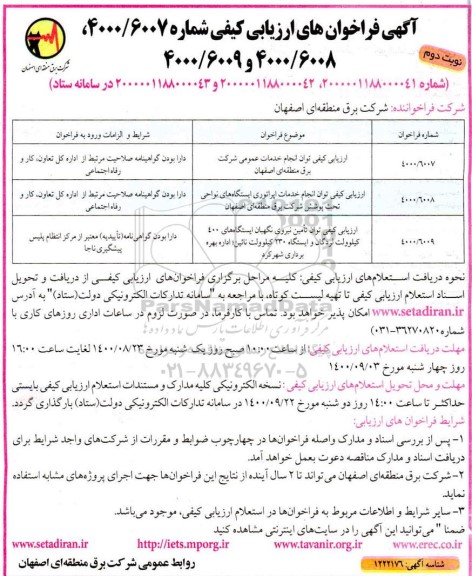 آگهی فراخوان های ارزیابی کیفی شماره ۴۰۰۰/۶۰۰۷،
۴۰۰۰/۶۰۰۸ و ۴۰۰۰/۶۰۰۹
نوبت دوم
شرکت برق منطقه‌ای اصفهان
(شماره ۲۰۰۰۰۰۱۱۸۸۰۰۰۰۴۱، ۲۰۰۰۰۰۱۱۸۸۰۰۰۰۴۲ و ۲۰۰۰۰۰۱۱۸۸۰۰۰۰۴۳ در سامانه ستاد)
شرکت فراخواننده: شرکت برق منطقه‌ای اصفهان
شماره فراخوان
موضوع فراخوان
شرایط و الزامات ورود به فراخوان
۴۰۰۰/۶۰۰۷
ارزیابی کیفی توان انجام خدمات عمومی شرکت
برق منطقه‌ای اصفهان
دارا بودن گواهینامه صلاحیت مرتبط از اداره کل تعاون، کار و
رفاه اجتماعی
۴۰۰۰/۶۰۰۸
ارزیابی کیفی توان انجام خدمات اپراتوری ایستگاه‌های نواحی
تحت پوشش شرکت برق منطقه‌ای اصفهان
دارا بودن گواهینامه صلاحیت مرتبط از اداره کل تعاون، کار و
رفاه اجتماعی
۴۰۰۰/۶۰۰۹
ارزیابی کیفی توان تامین نیروی نگهبان ایستگاه‌های ۴۰۰
کیلوولت نردگان و ایستگاه ۲۳۰ کیلوولت نائین؛ اداره بهره
برداری شهرکرد
دارا بودن گواهی‌نامه (تأییدیه) معتبر از مرکز انتظام پلیس
پیشگیری ناجا
نحوه دریافت استعلام‌های ارزیابی کیفی: کلیه مراحل برگزاری فراخوان‌های ارزیابی کیفی از دریافت و تحویل
اسناد استعلام ارزیابی کیفی تا تهیه لیست کوتاه، با مراجعه به "سامانه تدارکات الکترونیکی دولت(ستاد)" به آدرس
www.setadiran.ir امکان پذیر خواهد بود. تماس با کارفرما، در صورت لزوم در ساعات اداری روزهای کاری با
شماره ۳۶۲۷۰۸۲۰-۰۳۱
مهلت دریافت استعلام‌های ارزیابی کیفی: از ساعت ۱۰:۰۰ صبح روز یک شنبه مورخ ۱۴۰۰/۰۸/۲۳ لغایت ساعت ۱۶:۰۰
روز چهار شنبه مورخ ۱۴۰۰/۰۹/۰۳
۰۲۱-۸۸۳۴۹۶۷۰-۵
مهلت و محل تحویل استعلام‌های ارزیابی کیفی: نسخه الکترونیکی کلیه مدارک و مستندات استعلام ارزیابی کیفی بایستی
حداکثر تا ساعت ۱۴:۰۰ روز دو شنبه مورخ ۱۴۰۰/۰۹/۲۲ در سامانه تدارکات الکترونیکی دولت(ستاد) بارگذاری گردد.
شرایط فراخوان های ارزیابی:
۱- پس از بررسی اسناد و مدارک واصله فراخوان‌ها در چهارچوب ضوابط و مقررات از شرکت‌های واجد شرایط برای
دریافت اسناد و مدارک مناقصه دعوت بعمل خواهد آمد.
۲- شرکت برق منطقه‌ای اصفهان می‌تواند تا ۲ سال آینده از نتایج این فراخوان‌ها جهت اجرای پروژه‌های مشابه استفاده
نماید.
۳- سایر شرایط و اطلاعات مربوط به فراخوان‌ها در استعلام ارزیابی کیفی، موجود می‌باشد.
ضمنا " می‌توانید این آگهی را در سایت‌های اینترنتی مشاهده کنید
www.erec.co.ir www.tavanir.org.ir http://iets.mporg.ir www.setadiran.ir
روابط عمومی شرکت برق منطقه‌ای اصفهان
شناسه آگهی: ۱۲۲۲۱۷۶